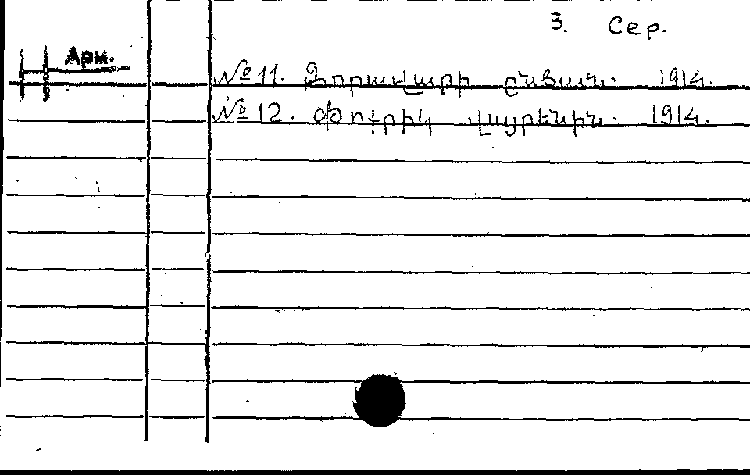 3. Сер.
Арм.
№ 11. Զորավարի ընծան. 1914.
№ 12. Փոքրիկ վայրենին. 1914.